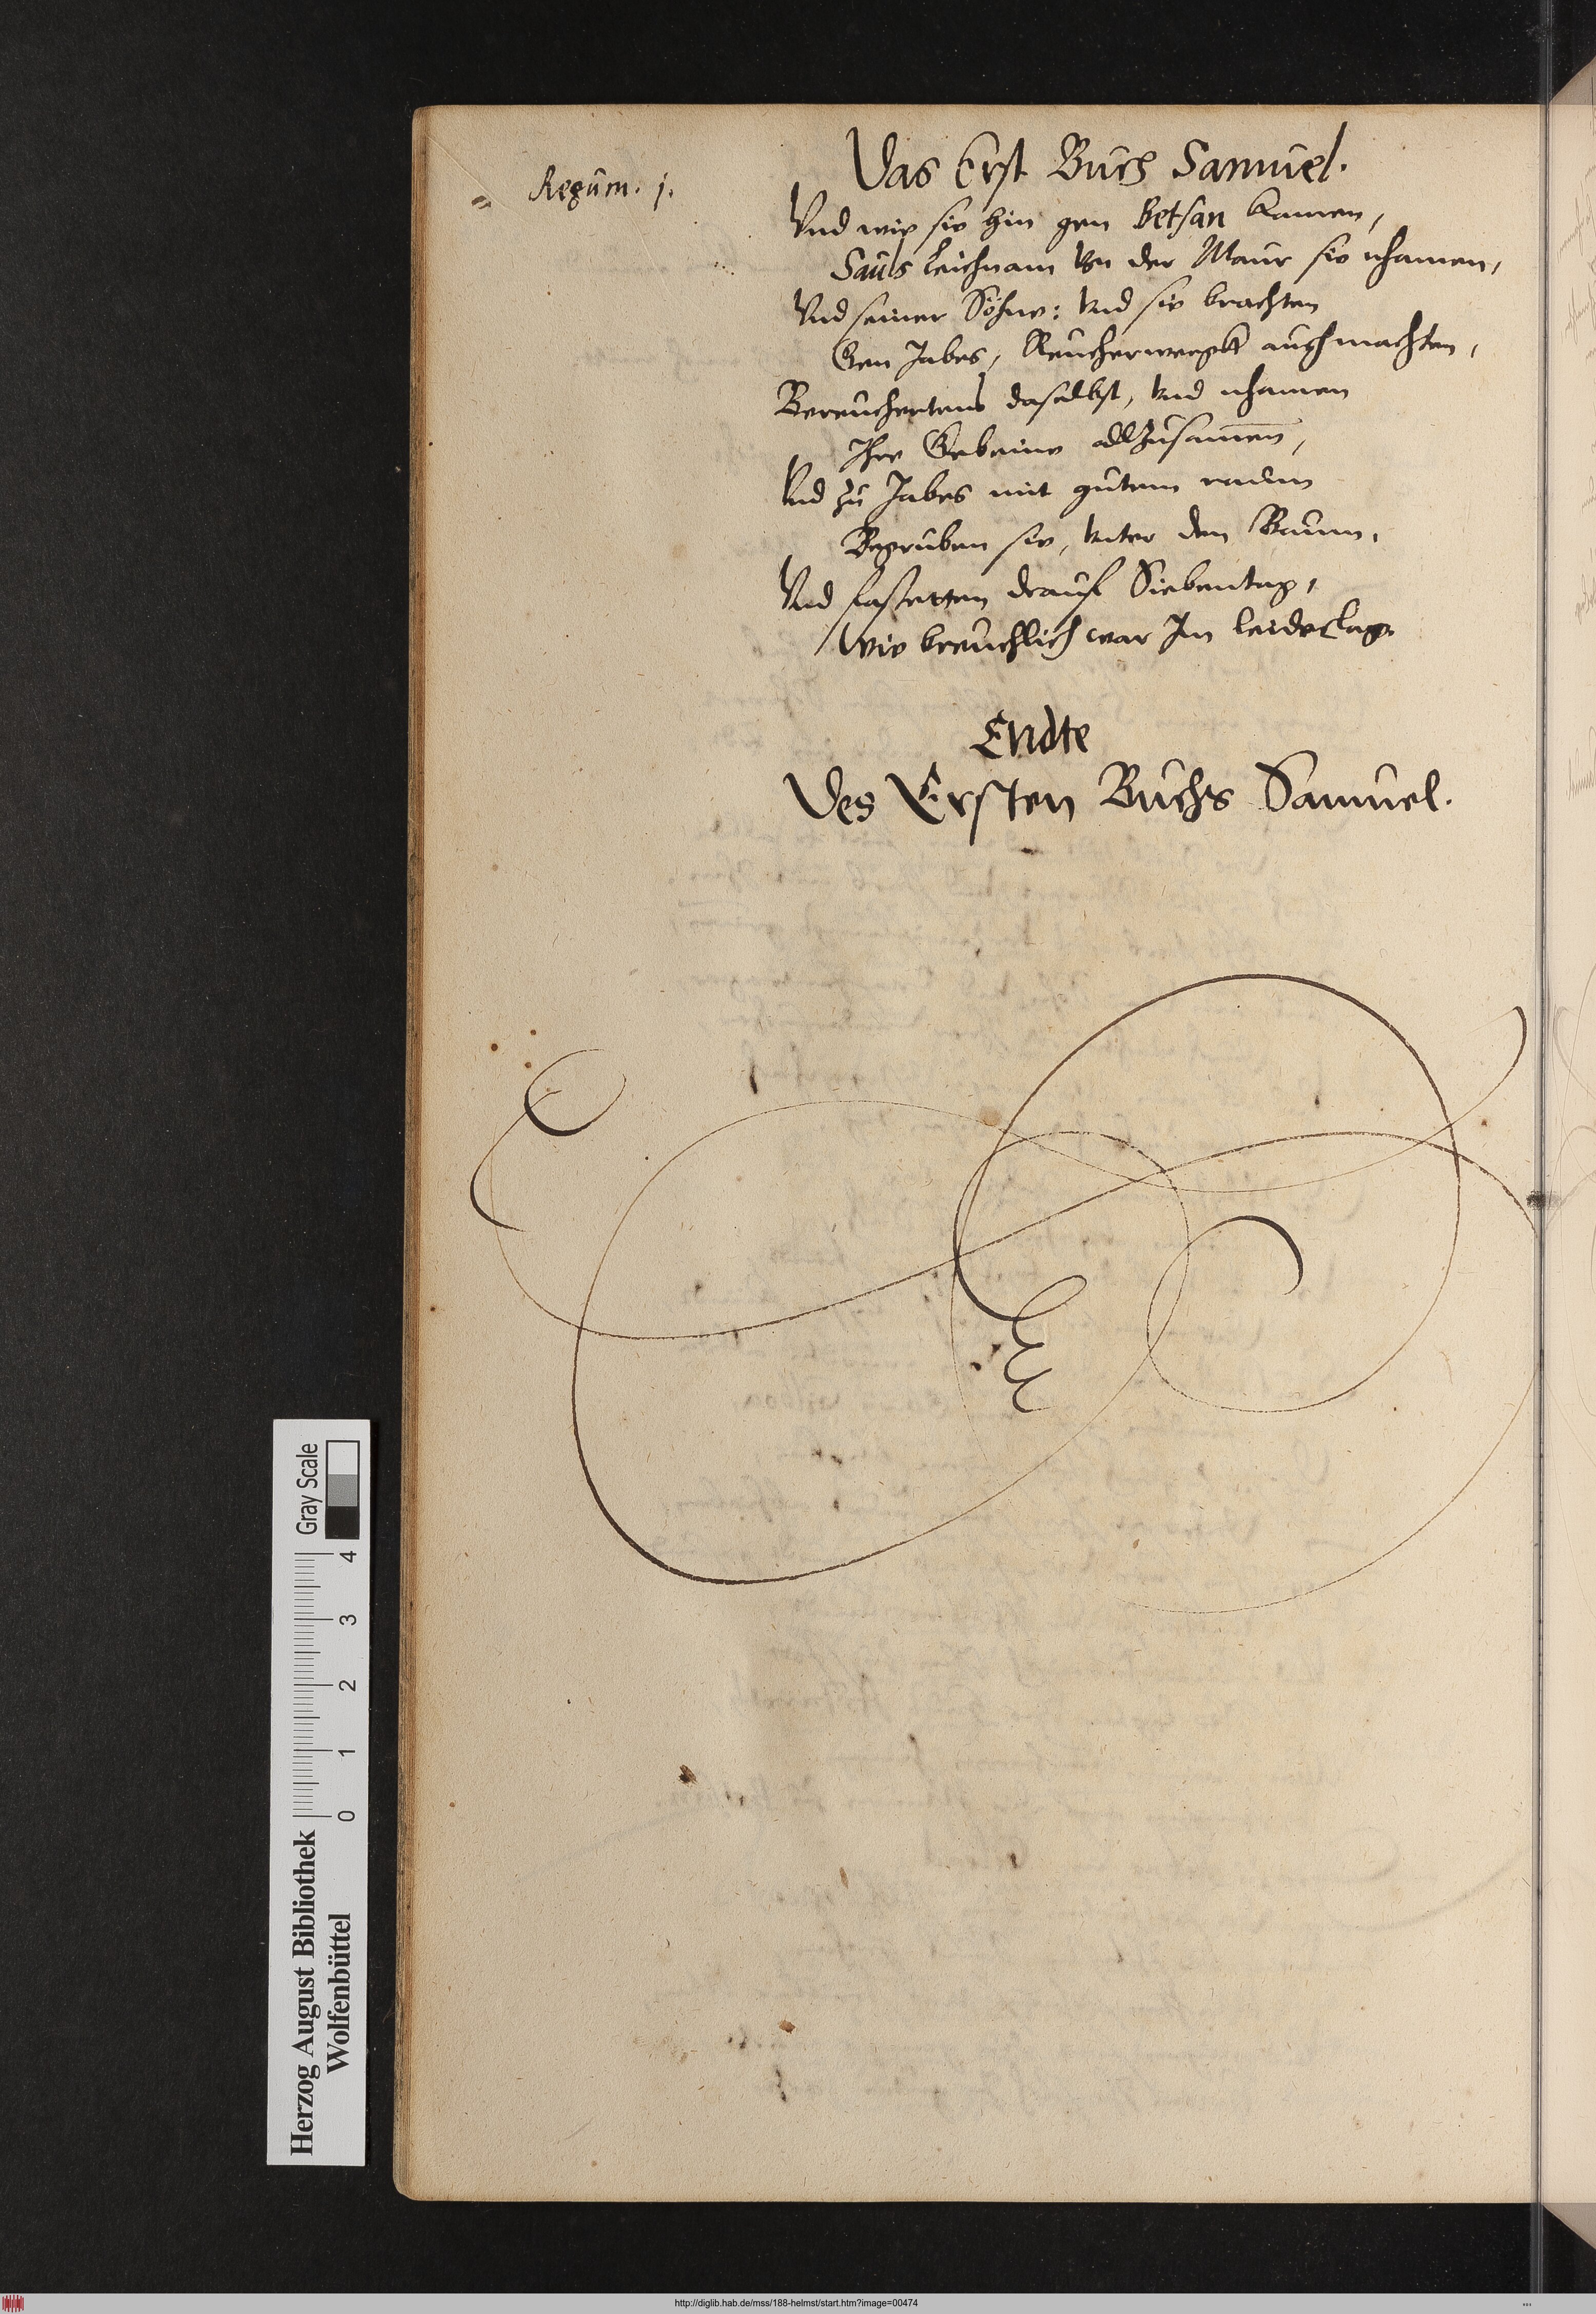 Das Erst Buch Samuel.
Regum. j.
Vnd wie sie hin gen Betsan kamen,
Sauls leichnam von der Maur sie nhamen,
Vnd seiner Söhne: vnd sie brachten
Gen Jabes, Reucherwergk auch machten,
Bereuchertens daselbst, vnd nhamen
Ihre Gebeine allzusamen,
Vnd zu Jabes mit gutem raum
Begruben sie, vnter den Baum,
Vnd fasteten drauf Siebentag,
Wie breuchlich war Im leideclag.
Endte
Des Ersten Buchs Samuel.
Herzog August Bibliothek
Wolfenbüttel
0 1 2 3 4
Gray Scale
http://diglib.hab.de/mss/188-helmst/start.htm?image=00474